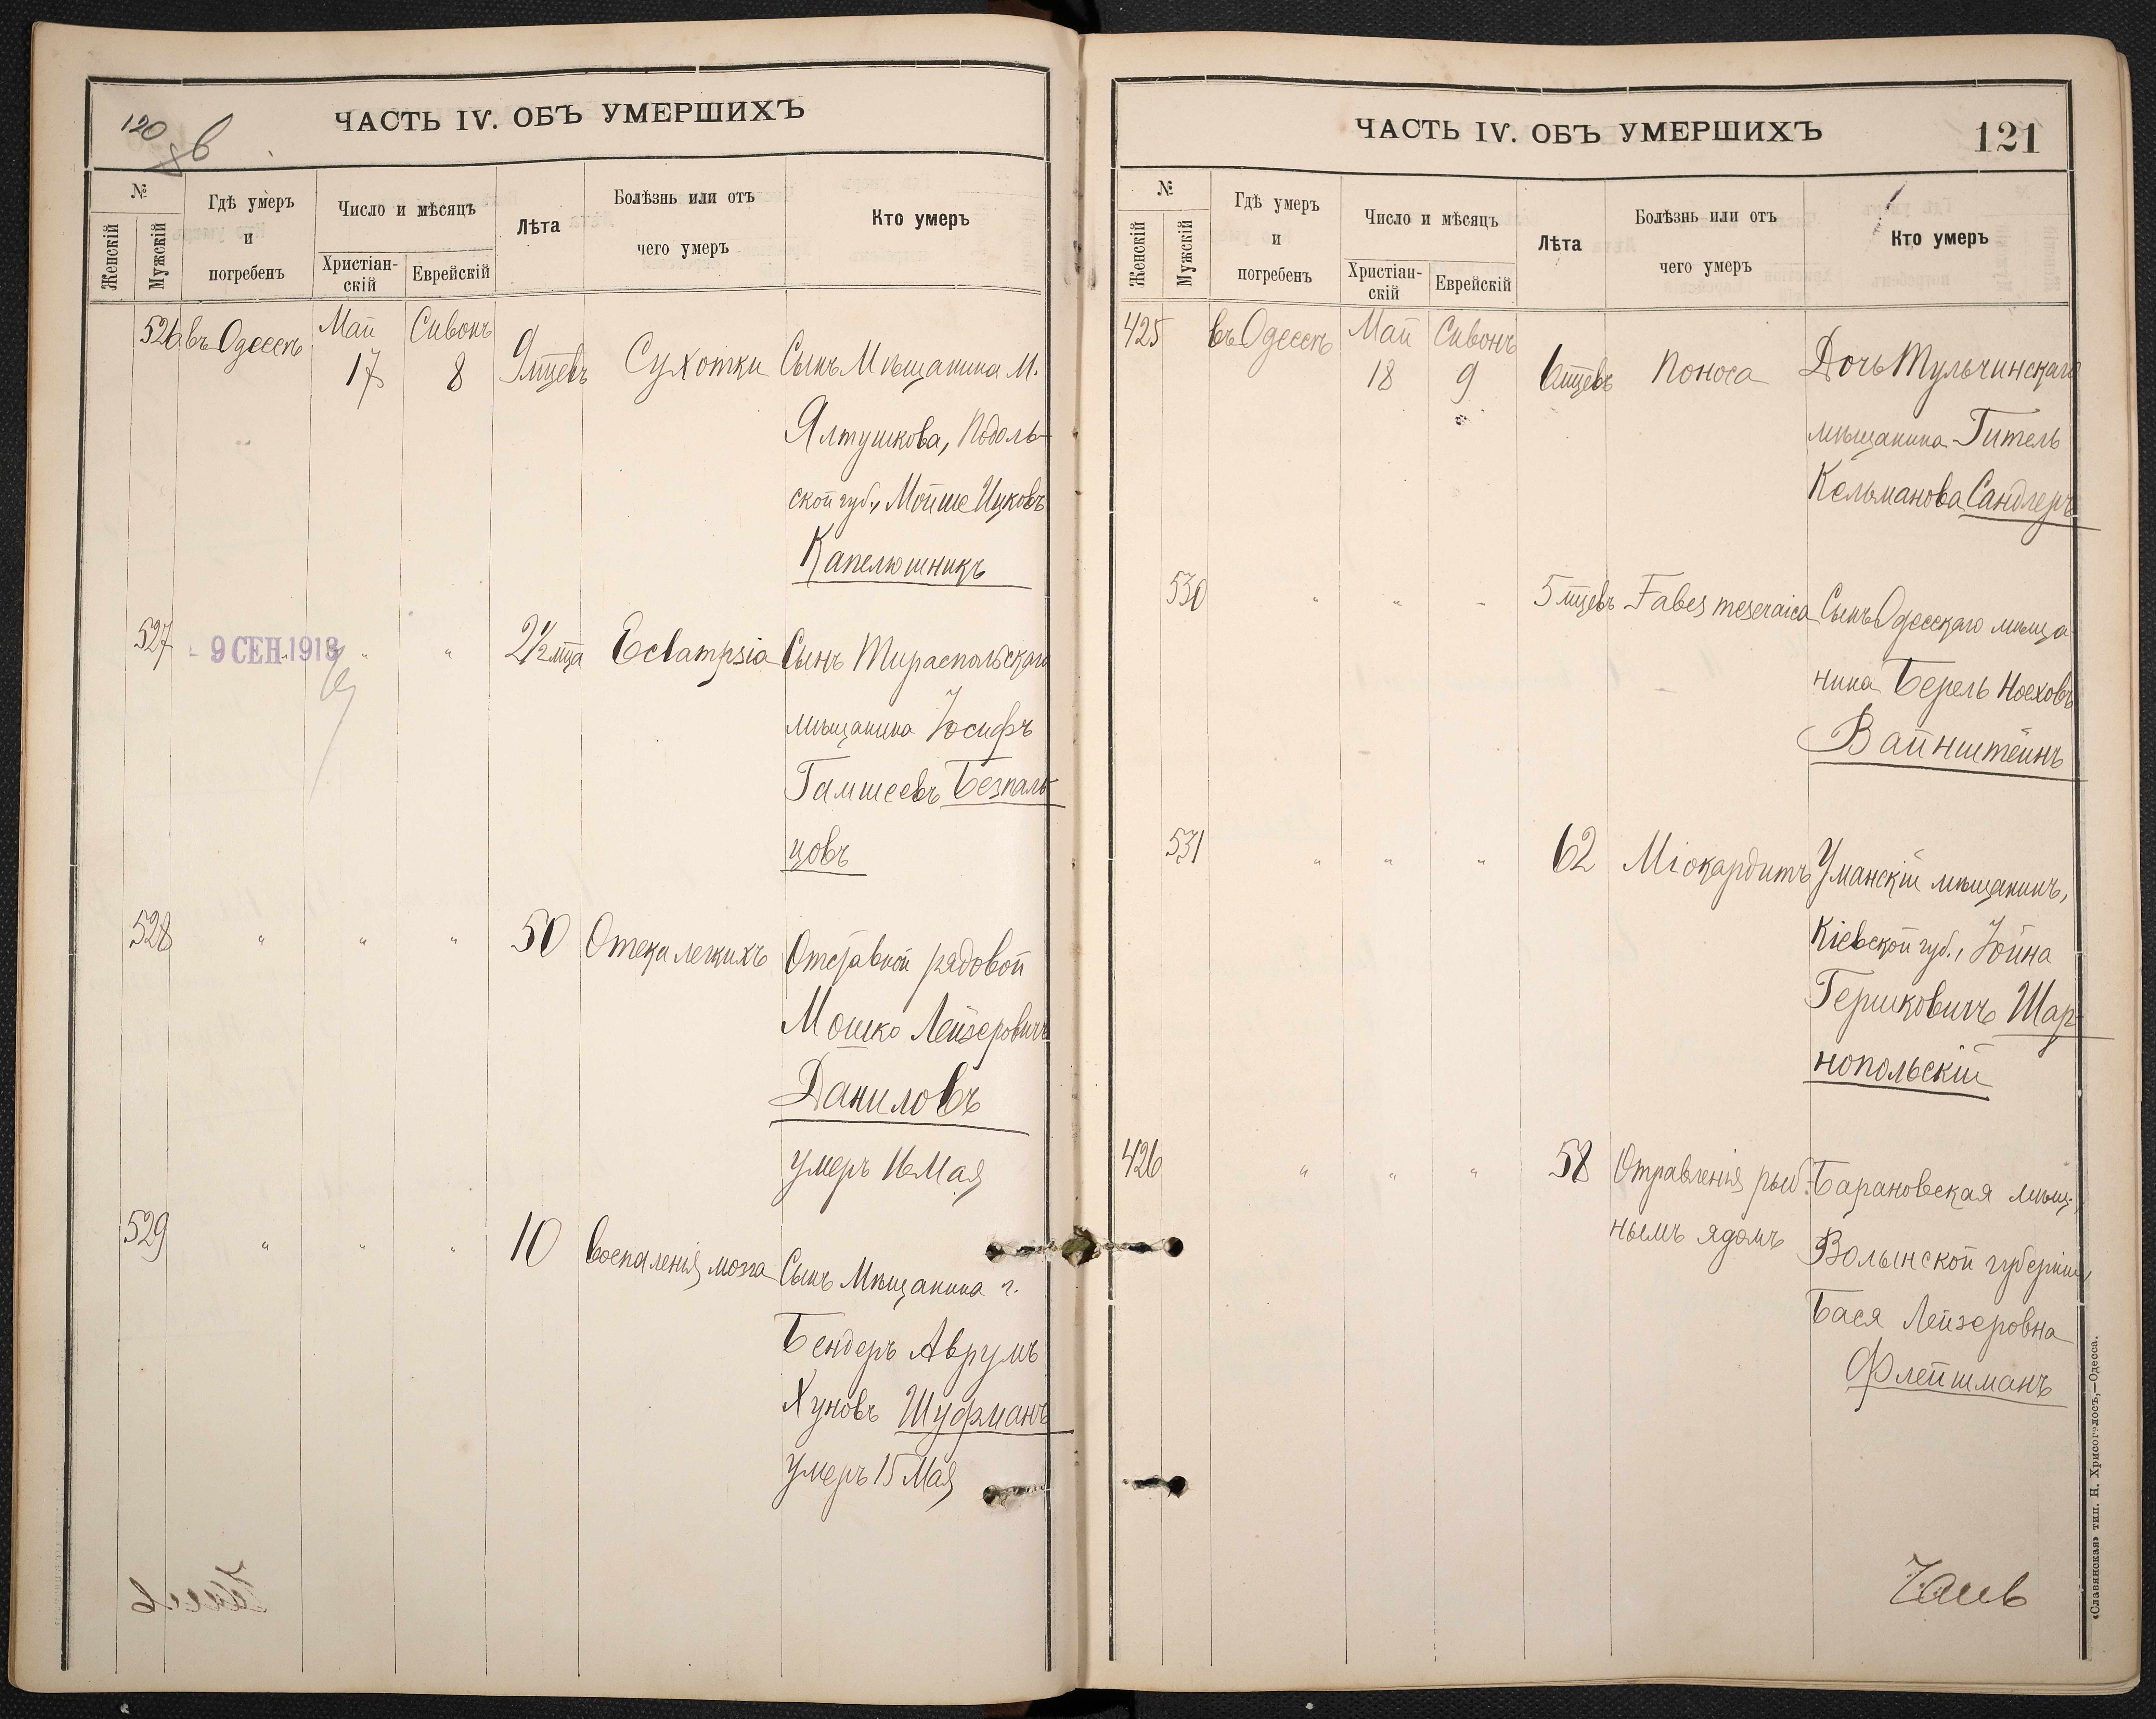 120
ЧАСТЬ IV. ОБЪ УМЕРШИХЪ
№
Женскій
Мужскій
Гдѣ умеръ
и
погребенъ
Число и мѣсяцъ
Христіан-
скій
Еврейскій
Лѣта
Болѣзнь или отъ
чего умеръ
Кто умеръ
526 въ Одессѣ Май 17 Сивонъ 8 9 мцевъ Сухотки Сынъ Мѣщанина м.
Ялтушкова, Подоль-
ской губ., Мойше Ицковъ
Капелюшникъ
527 - 9 СЕН.1913 " " 2 1/2 мца Eclampsia Сынъ Тираспольскаго
мѣщанина Іосифъ
Гамшеевъ Безпаль-
цовъ
528 " " " 50 Отека легкихъ Отставной рядовой
Мошко Лейзеровичъ
Даниловъ
умеръ 16 Мая
529 " " " 10 Воспаленія мозга Сынъ Мѣщанина г.
Бендеръ Аврумъ
Хуновъ Шуфманъ
умеръ 15 Мая
ЧАСТЬ IV. ОБЪ УМЕРШИХЪ
121
№
Женскій
Мужскій
Гдѣ умеръ
и
погребенъ
Число и мѣсяцъ
Христіан-
скій
Еврейскій
Лѣта
Болѣзнь или отъ
чего умеръ
Кто умеръ
425 въ Одессѣ Май 18 Сивонъ 9 6 мцевъ Поноса Дочь Тульчинскаго
мѣщанина Гитель
Кельманова Сандлеръ
530 " " " 5 мцевъ Tabes meseraica Сынъ Одесскаго мѣща-
нина Берель Ноеховъ
Вайнштейнъ
531 " " " 62 Міокардитъ Уманскій мѣщанинъ,
Кіевской губ., Іойна
Гершковичъ Шар-
нопольскій
426 " " " 58 Отравленія рыб- Барановская мѣщ.,
нымъ ядомъ Волынской губерніи
Бася Лейзеровна
Флейшманъ
«Славянская» тип. Н. Хрисогелосъ,—Одесса.